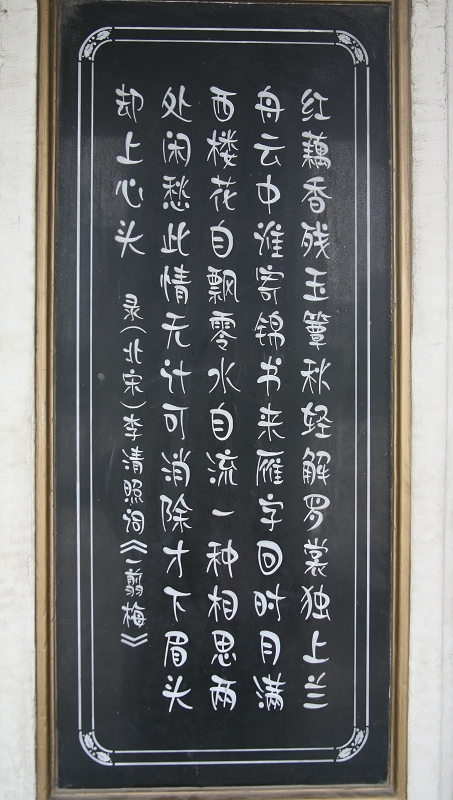 红藕香残玉簟秋轻解罗裳独上兰
舟云中谁寄锦书来雁字回时月满
西楼花自飘零水自流一种相思两
处闲愁此情无计可消除才下眉头
却上心头
录（北宋）李清照词《一翦梅》